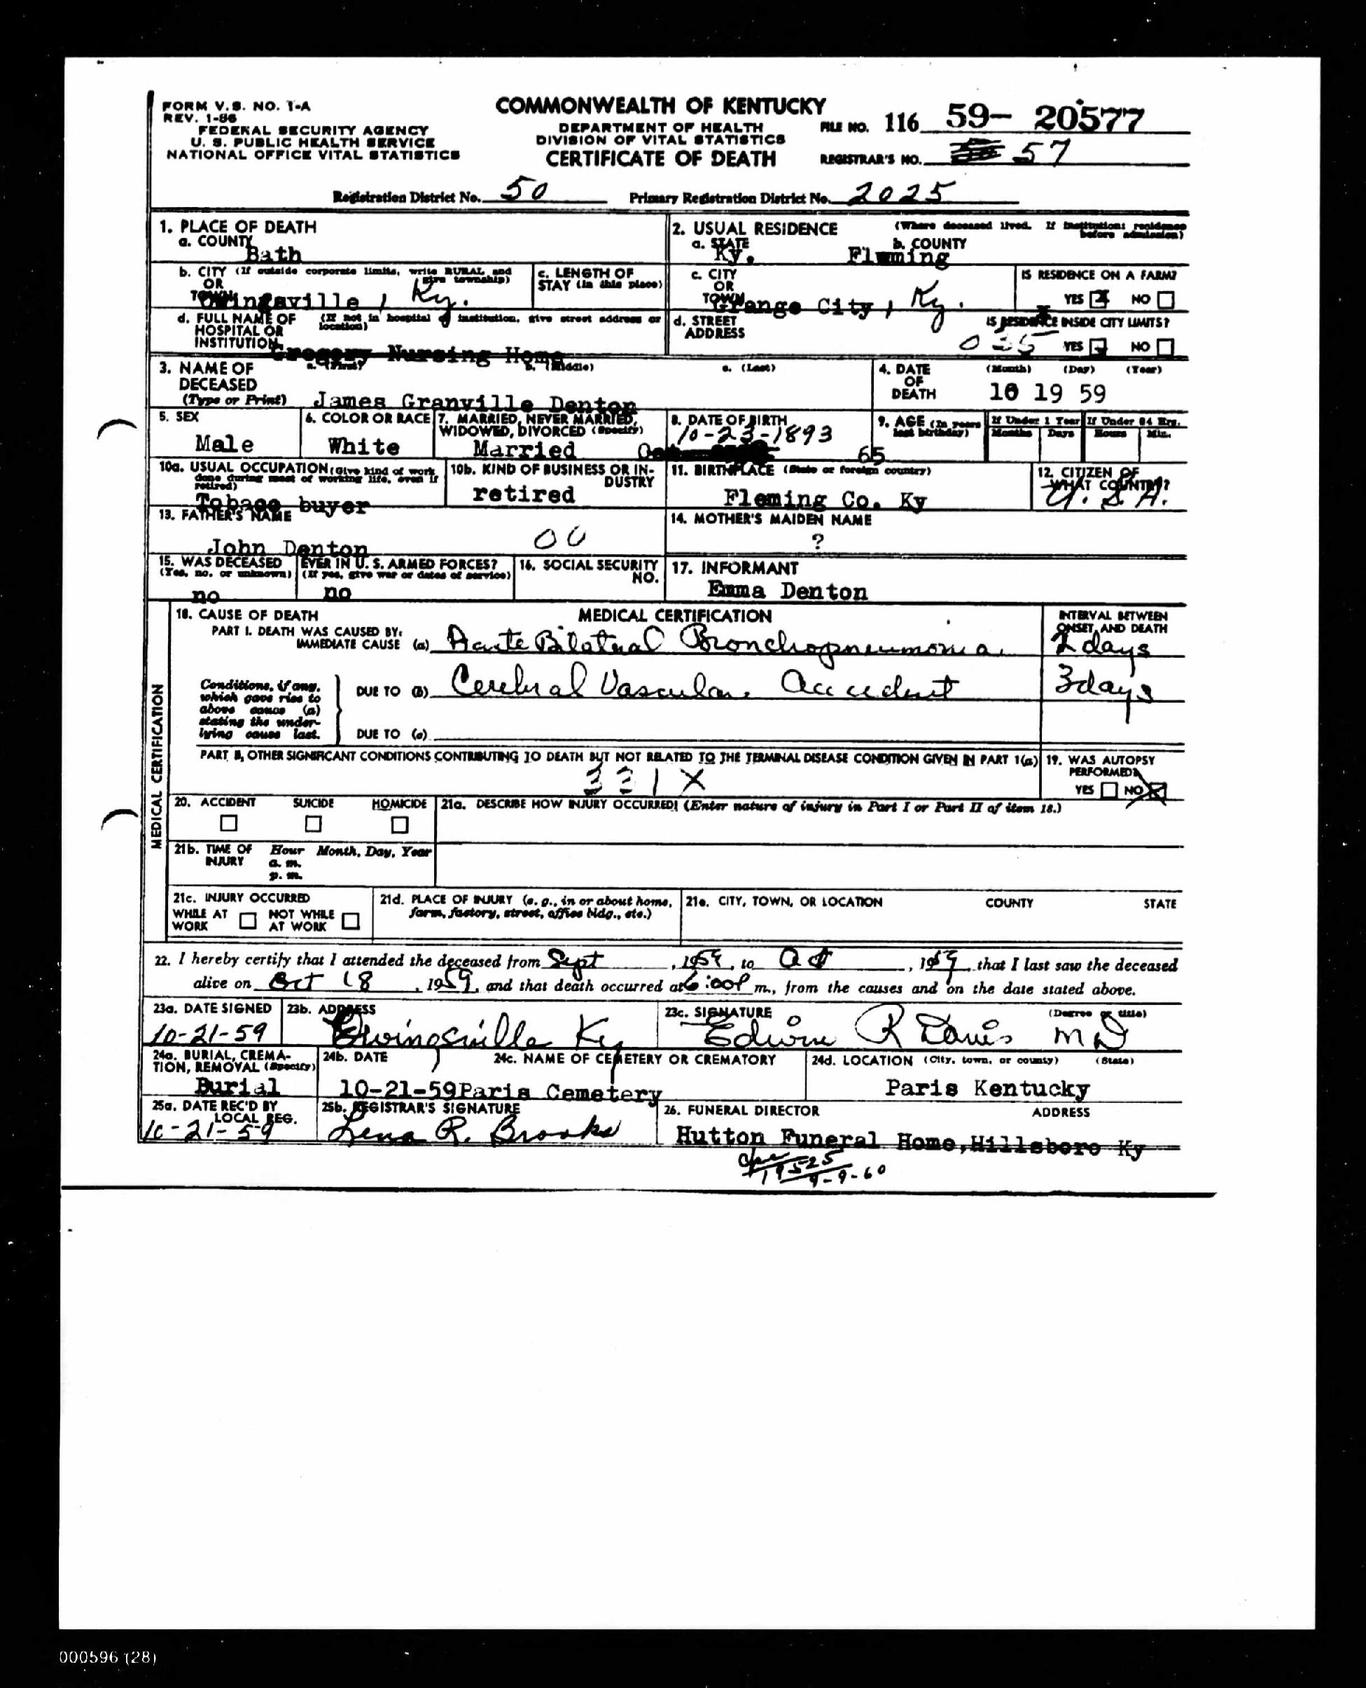 FORM V.S. NO. 1-A
REV. 1-56
FEDERAL SECURITY AGENCY
U. S. PUBLIC HEALTH SERVICE
NATIONAL OFFICE VITAL STATISTICS
COMMONWEALTH OF KENTUCKY
DEPARTMENT OF HEALTH
DIVISION OF VITAL STATISTICS
CERTIFICATE OF DEATH
FILE NO. 116 59- 20577
REGISTRAR'S NO. 57
Registration District No. 50 Primary Registration District No. 2025
1. PLACE OF DEATH
a. COUNTY
Bath
2. USUAL RESIDENCE (Where deceased lived. If institution: residence before admission)
a. STATE b. COUNTY
Ky. Fleming
b. CITY (If outside corporate limits, write RURAL and give township)
OR
TOWN
Owingsville, Ky.
c. LENGTH OF STAY (in this place)
c. CITY
OR
TOWN
Grange City, Ky.
IS RESIDENCE ON A FARM?
YES NO
d. FULL NAME OF (If not in hospital or institution, give street address or location)
HOSPITAL OR
INSTITUTION
Gregory Nursing Home
d. STREET
ADDRESS
IS RESIDENCE INSIDE CITY LIMITS?
035 YES NO
3. NAME OF a. (First) b. (Middle) c. (Last)
DECEASED
(Type or Print) James Granville Denton
4. DATE (Month) (Day) (Year)
OF
DEATH 10 19 59
5. SEX
Male
6. COLOR OR RACE
White
7. MARRIED, NEVER MARRIED,
WIDOWED, DIVORCED (Specify)
Married
8. DATE OF BIRTH
10-23-1893
9. AGE (In years last birthday)
65
If Under 1 Year If Under 24 Hrs.
Months Days Hours Min.
10a. USUAL OCCUPATION (Give kind of work done during most of working life, even if retired)
Tobaco buyer
10b. KIND OF BUSINESS OR INDUSTRY
retired
11. BIRTHPLACE (State or foreign country)
Fleming Co. Ky
12. CITIZEN OF
WHAT COUNTRY?
U. S. A.
13. FATHER'S NAME
John Denton 00
14. MOTHER'S MAIDEN NAME
?
15. WAS DECEASED EVER IN U. S. ARMED FORCES?
(Yes, no, or unknown) (If yes, give war or dates of service)
no no
16. SOCIAL SECURITY
NO.
17. INFORMANT
Emma Denton
MEDICAL CERTIFICATION
18. CAUSE OF DEATH MEDICAL CERTIFICATION INTERVAL BETWEEN
ONSET AND DEATH
PART I. DEATH WAS CAUSED BY:
IMMEDIATE CAUSE (a) Acute Bilateral Bronchopneumonia 2 days
Conditions, if any,
which gave rise to
above cause (a)
stating the under-
lying cause last.
DUE TO (b) Cerebral Vascular Accident 3 days
DUE TO (c)
PART II, OTHER SIGNIFICANT CONDITIONS CONTRIBUTING TO DEATH BUT NOT RELATED TO THE TERMINAL DISEASE CONDITION GIVEN IN PART 1(a)
331X
19. WAS AUTOPSY
PERFORMED?
YES NO
20. ACCIDENT SUICIDE HOMICIDE
21a. DESCRIBE HOW INJURY OCCURRED! (Enter nature of injury in Part I or Part II of item 18.)
21b. TIME OF Hour Month, Day, Year
INJURY a. m.
p. m.
21c. INJURY OCCURRED
WHILE AT NOT WHILE
WORK AT WORK
21d. PLACE OF INJURY (e. g., in or about home,
farm, factory, street, office bldg., etc.)
21e. CITY, TOWN, OR LOCATION COUNTY STATE
22. I hereby certify that I attended the deceased from Sept, 1959, to Oct, 1959, that I last saw the deceased
alive on Oct 18, 1959, and that death occurred at 6:00P m., from the causes and on the date stated above.
23a. DATE SIGNED
10-21-59
23b. ADDRESS
Owingsville Ky
23c. SIGNATURE (Degree or title)
Edwin R Davis MD
24a. BURIAL, CREMA-
TION, REMOVAL (Specify)
Burial
24b. DATE
10-21-59
24c. NAME OF CEMETERY OR CREMATORY
Paris Cemetery
24d. LOCATION (City, town, or county) (State)
Paris Kentucky
25a. DATE REC'D BY
LOCAL REG.
10-21-59
25b. REGISTRAR'S SIGNATURE
Lena R. Brooks
26. FUNERAL DIRECTOR ADDRESS
Hutton Funeral Home, Hillsboro Ky
19525
9-9-60
000596 (28)